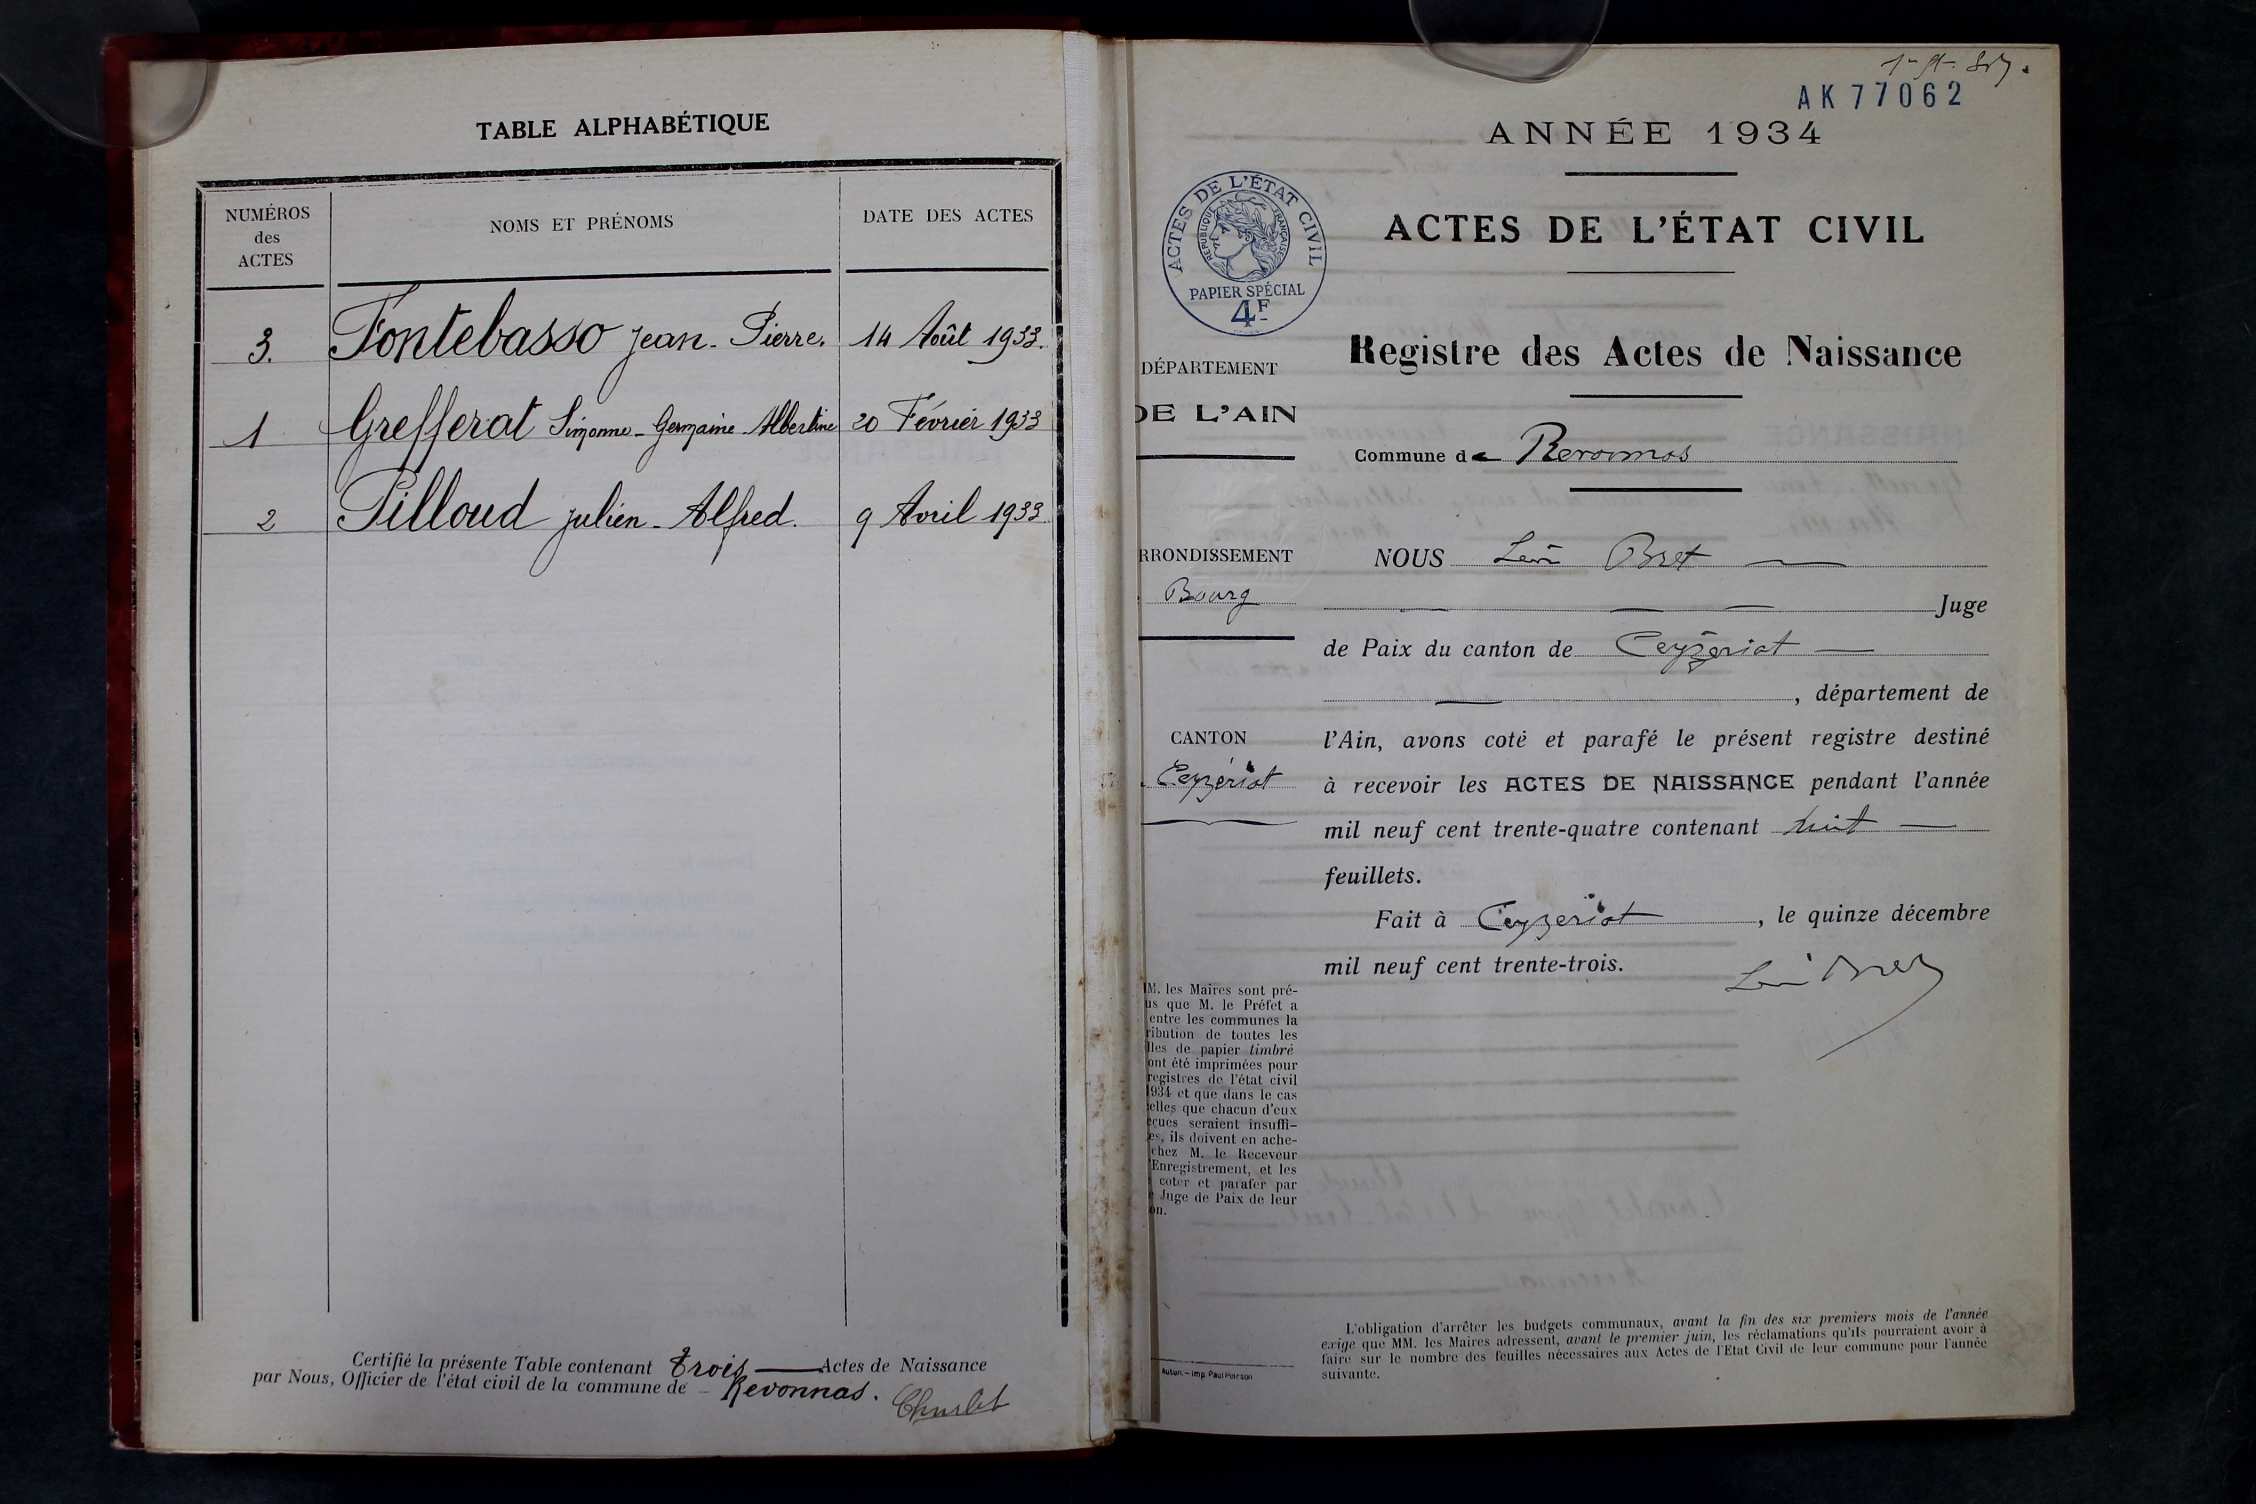 TABLE ALPHABÉTIQUE
NUMÉROS
des
ACTES
NOMS ET PRÉNOMS
DATE DES ACTES
3. Fontebasso Jean-Pierre. 14 Août 1933.
1 Grefferat Simonne-Germaine-Albertine 20 Février 1933
2 Pilloud Julien-Alfred. 9 Avril 1933
Certifié la présente Table contenant trois Actes de Naissance
par Nous, Officier de l'état civil de la commune de Revonnas.
AK 77062
ANNÉE 1934
ACTES DE L'ÉTAT CIVIL
RÉPUBLIQUE FRANÇAISE
PAPIER SPÉCIAL
4F
ACTES DE L'ÉTAT CIVIL
Registre des Actes de Naissance
DÉPARTEMENT
DE L'AIN
Commune de Revonnas
RRONDISSEMENT
Bourg
NOUS Léon Bret
Juge
de Paix du canton de Ceyzériat
, département de
CANTON
Ceyzériat
l'Ain, avons coté et parafé le présent registre destiné
à recevoir les ACTES DE NAISSANCE pendant l'année
mil neuf cent trente-quatre contenant huit
feuillets.
Fait à Ceyzériat, le quinze décembre
mil neuf cent trente-trois.
Léon Bret
M. les Maires sont pré-
us que M. le Préfet a
entre les communes la
ribution de toutes les
lles de papier timbré
ont été imprimées pour
registres de l'état civil
1934 et que dans le cas
elles que chacun d'eux
eçues seraient insuffi-
es, ils doivent en ache-
chez M. le Receveur
Enregistrement, et les
coter et parafer par
Juge de Paix de leur
on.
Autun. — Imp. Paul Poirson
L'obligation d'arrêter les budgets communaux, avant la fin des six premiers mois de l'année
exige que MM. les Maires adressent, avant le premier juin, les réclamations qu'ils pourraient avoir à
faire sur le nombre des feuilles nécessaires aux Actes de l'Etat Civil de leur commune pour l'année
suivante.